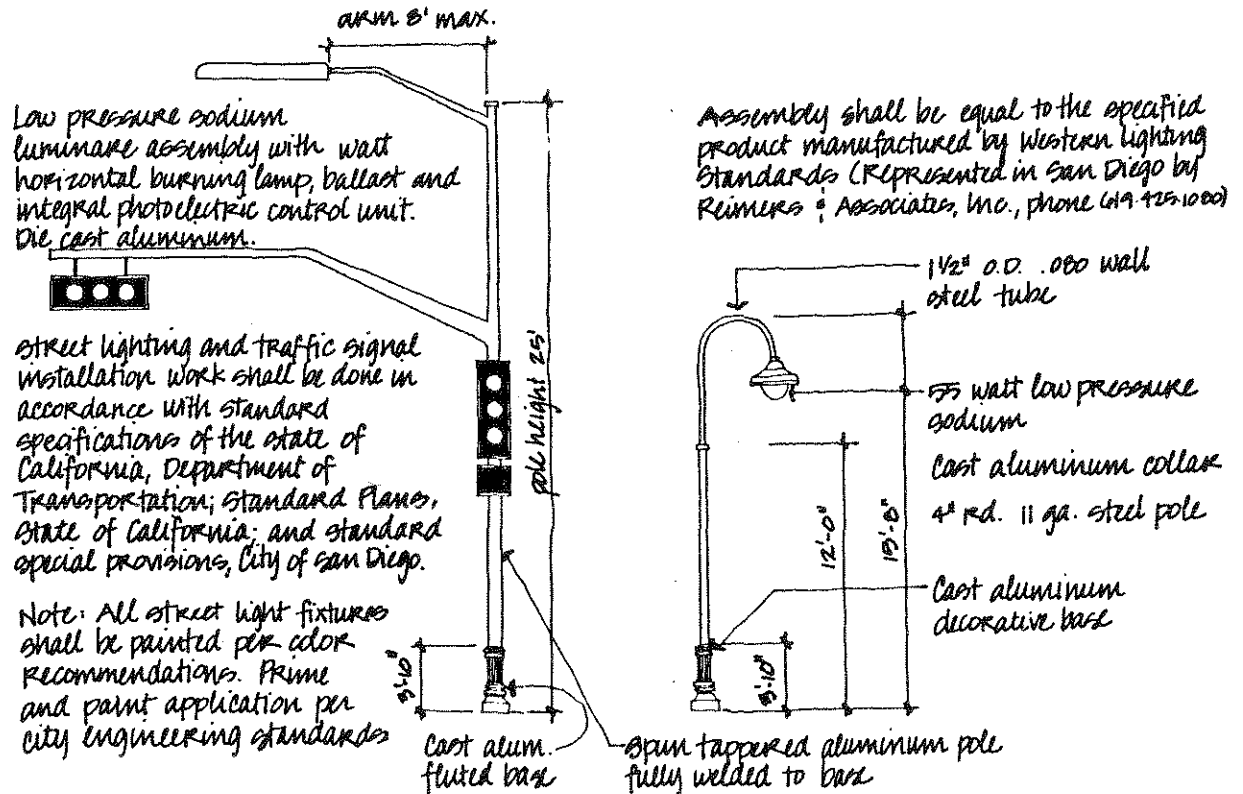 arm 8' max.
Low pressure sodium
luminare assembly with watt
horizontal burning lamp, ballast and
integral photoelectric control unit.
Die cast aluminum.
street lighting and traffic signal
installation work shall be done in
accordance with standard
specifications of the state of
California, Department of
Transportation; Standard Plans,
State of California; and standard
special provisions, City of San Diego.
Note: All street light fixtures
shall be painted per color
recommendations. Prime
and paint application per
city engineering standards
pole height 25'
3'-10"
Cast alum.
fluted base
spun tappered aluminum pole
fully welded to base
Assembly shall be equal to the specified
product manufactured by Western Lighting
Standards (Represented in San Diego by
Reimers & Associates, Inc., phone (619.425.1080)
1 1/2" O.D. .080 wall
steel tube
55 watt low pressure
sodium
Cast aluminum collar
4" rd. 11 ga. steel pole
Cast aluminum
decorative base
12'-0"
3'-10"